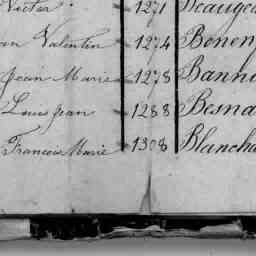 Victor 1271 Beauge
an Valentin 1274 Bonen
Jean Marie 1278 Bann
Louis Jean 1288 Besna
Francois Marie 1308 Blancha